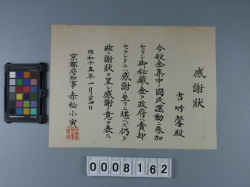 感謝狀
吉村馨殿
今般金集中國民運動ニ參加
セラレ御祕藏ノ金ヲ政府ニ賣却
セラレタルハ感謝ニ堪ヘス仍テ
故ニ謝狀ヲ呈シ感謝ノ意ヲ表ス
昭和十五年一月廿四日
京都府知事赤松小寅
0008162